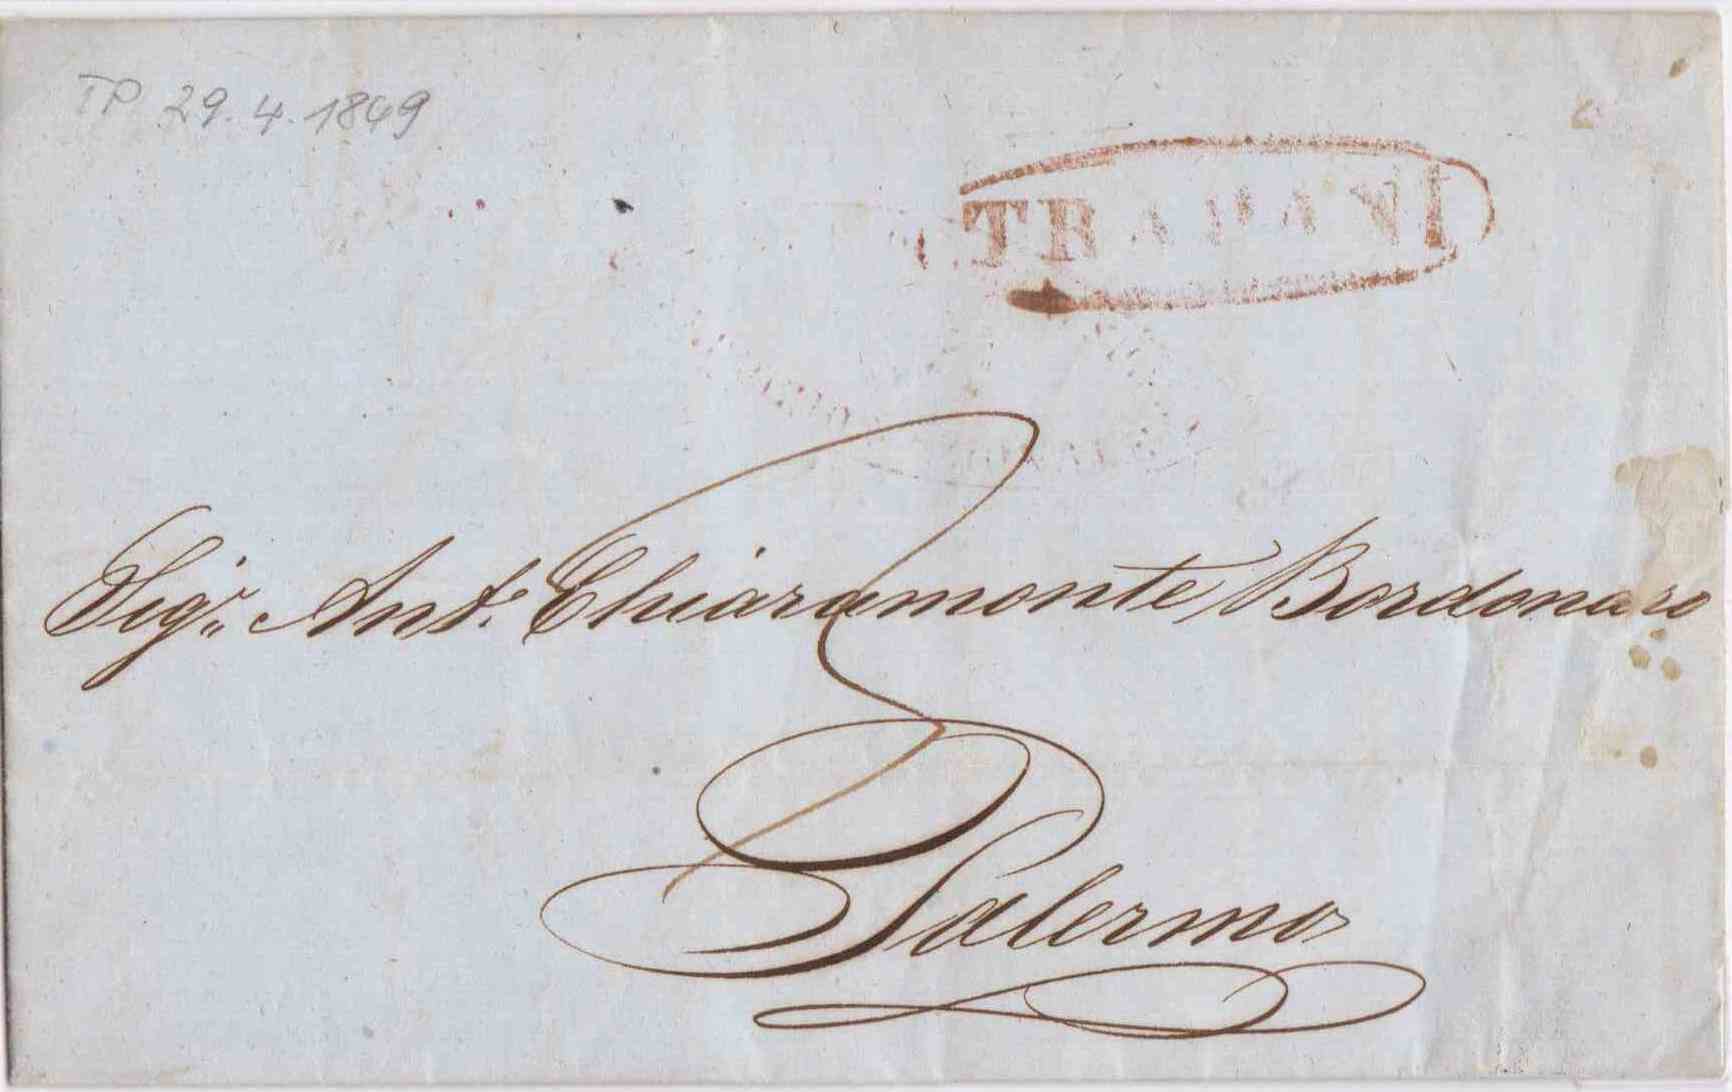 TP 29.4.1849
TRAPANI
Sigr. Ant. Chiaramonte Bordonaro
Palermo